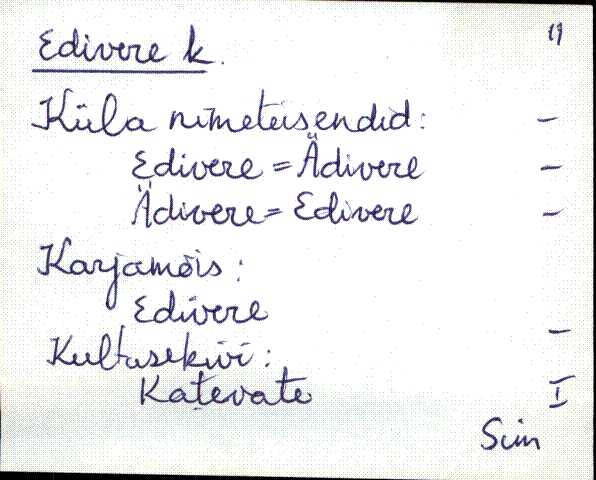 Edivere k. 11
Küla nimeteisendid: –
Edivere = Ädivere –
Ädivere = Edivere –
Karjamõis:
Edivere –
Kultusekivi:
Kaţevate I
Sim